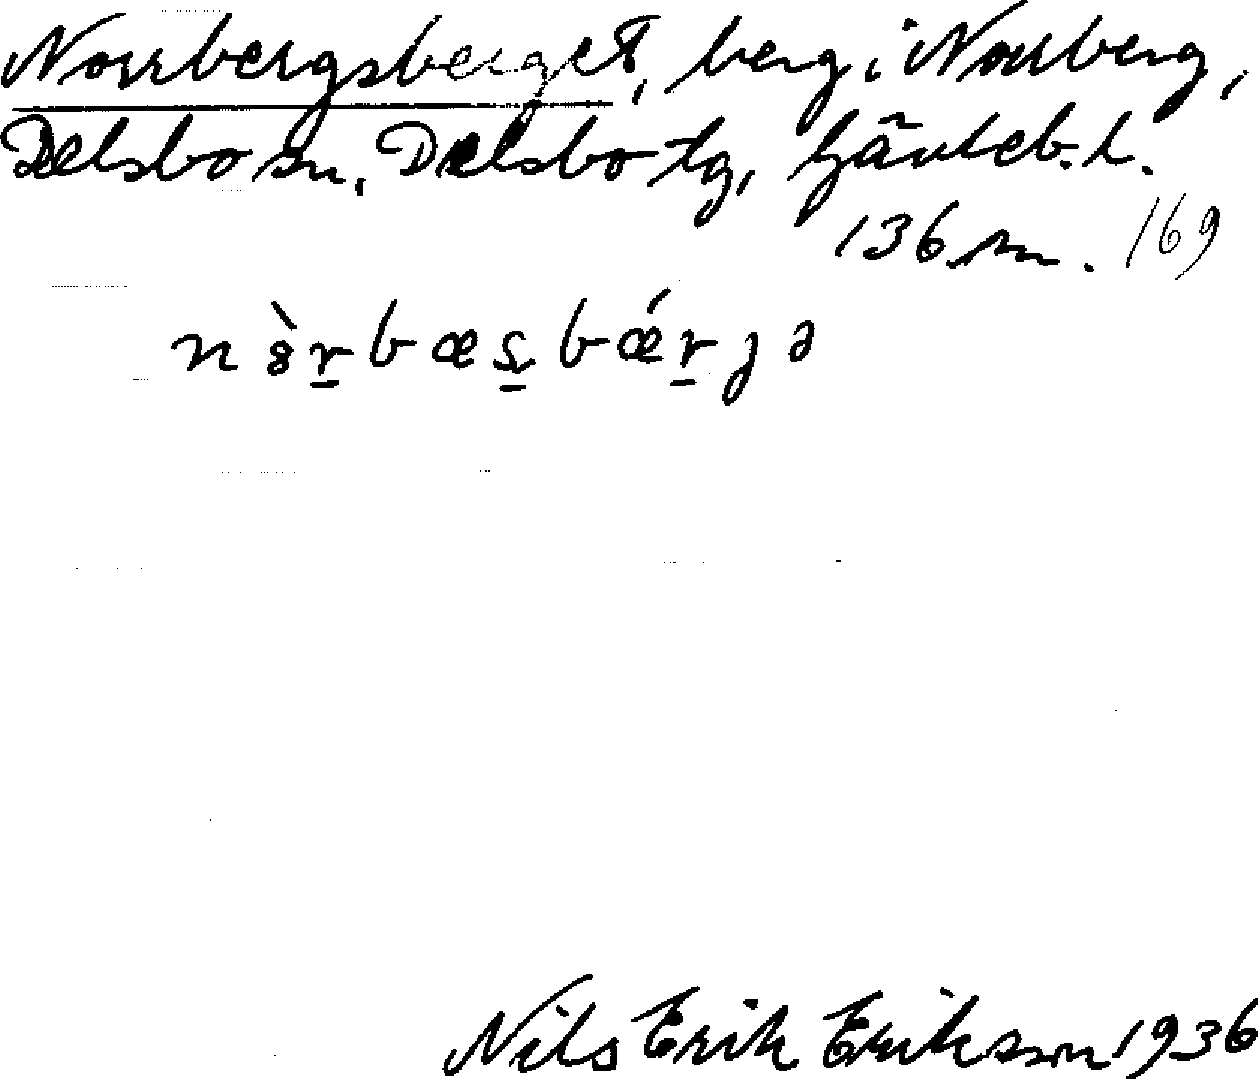 Norrbergsberget, berg i Norrberg,
Delsbo sn, Delsbo tg, Gävleb. l.
136 m. 169
n 8̀ r̲ b æ s̲ b ǽ r̲ ȷ ə
Nils Erik Eriksson 1936